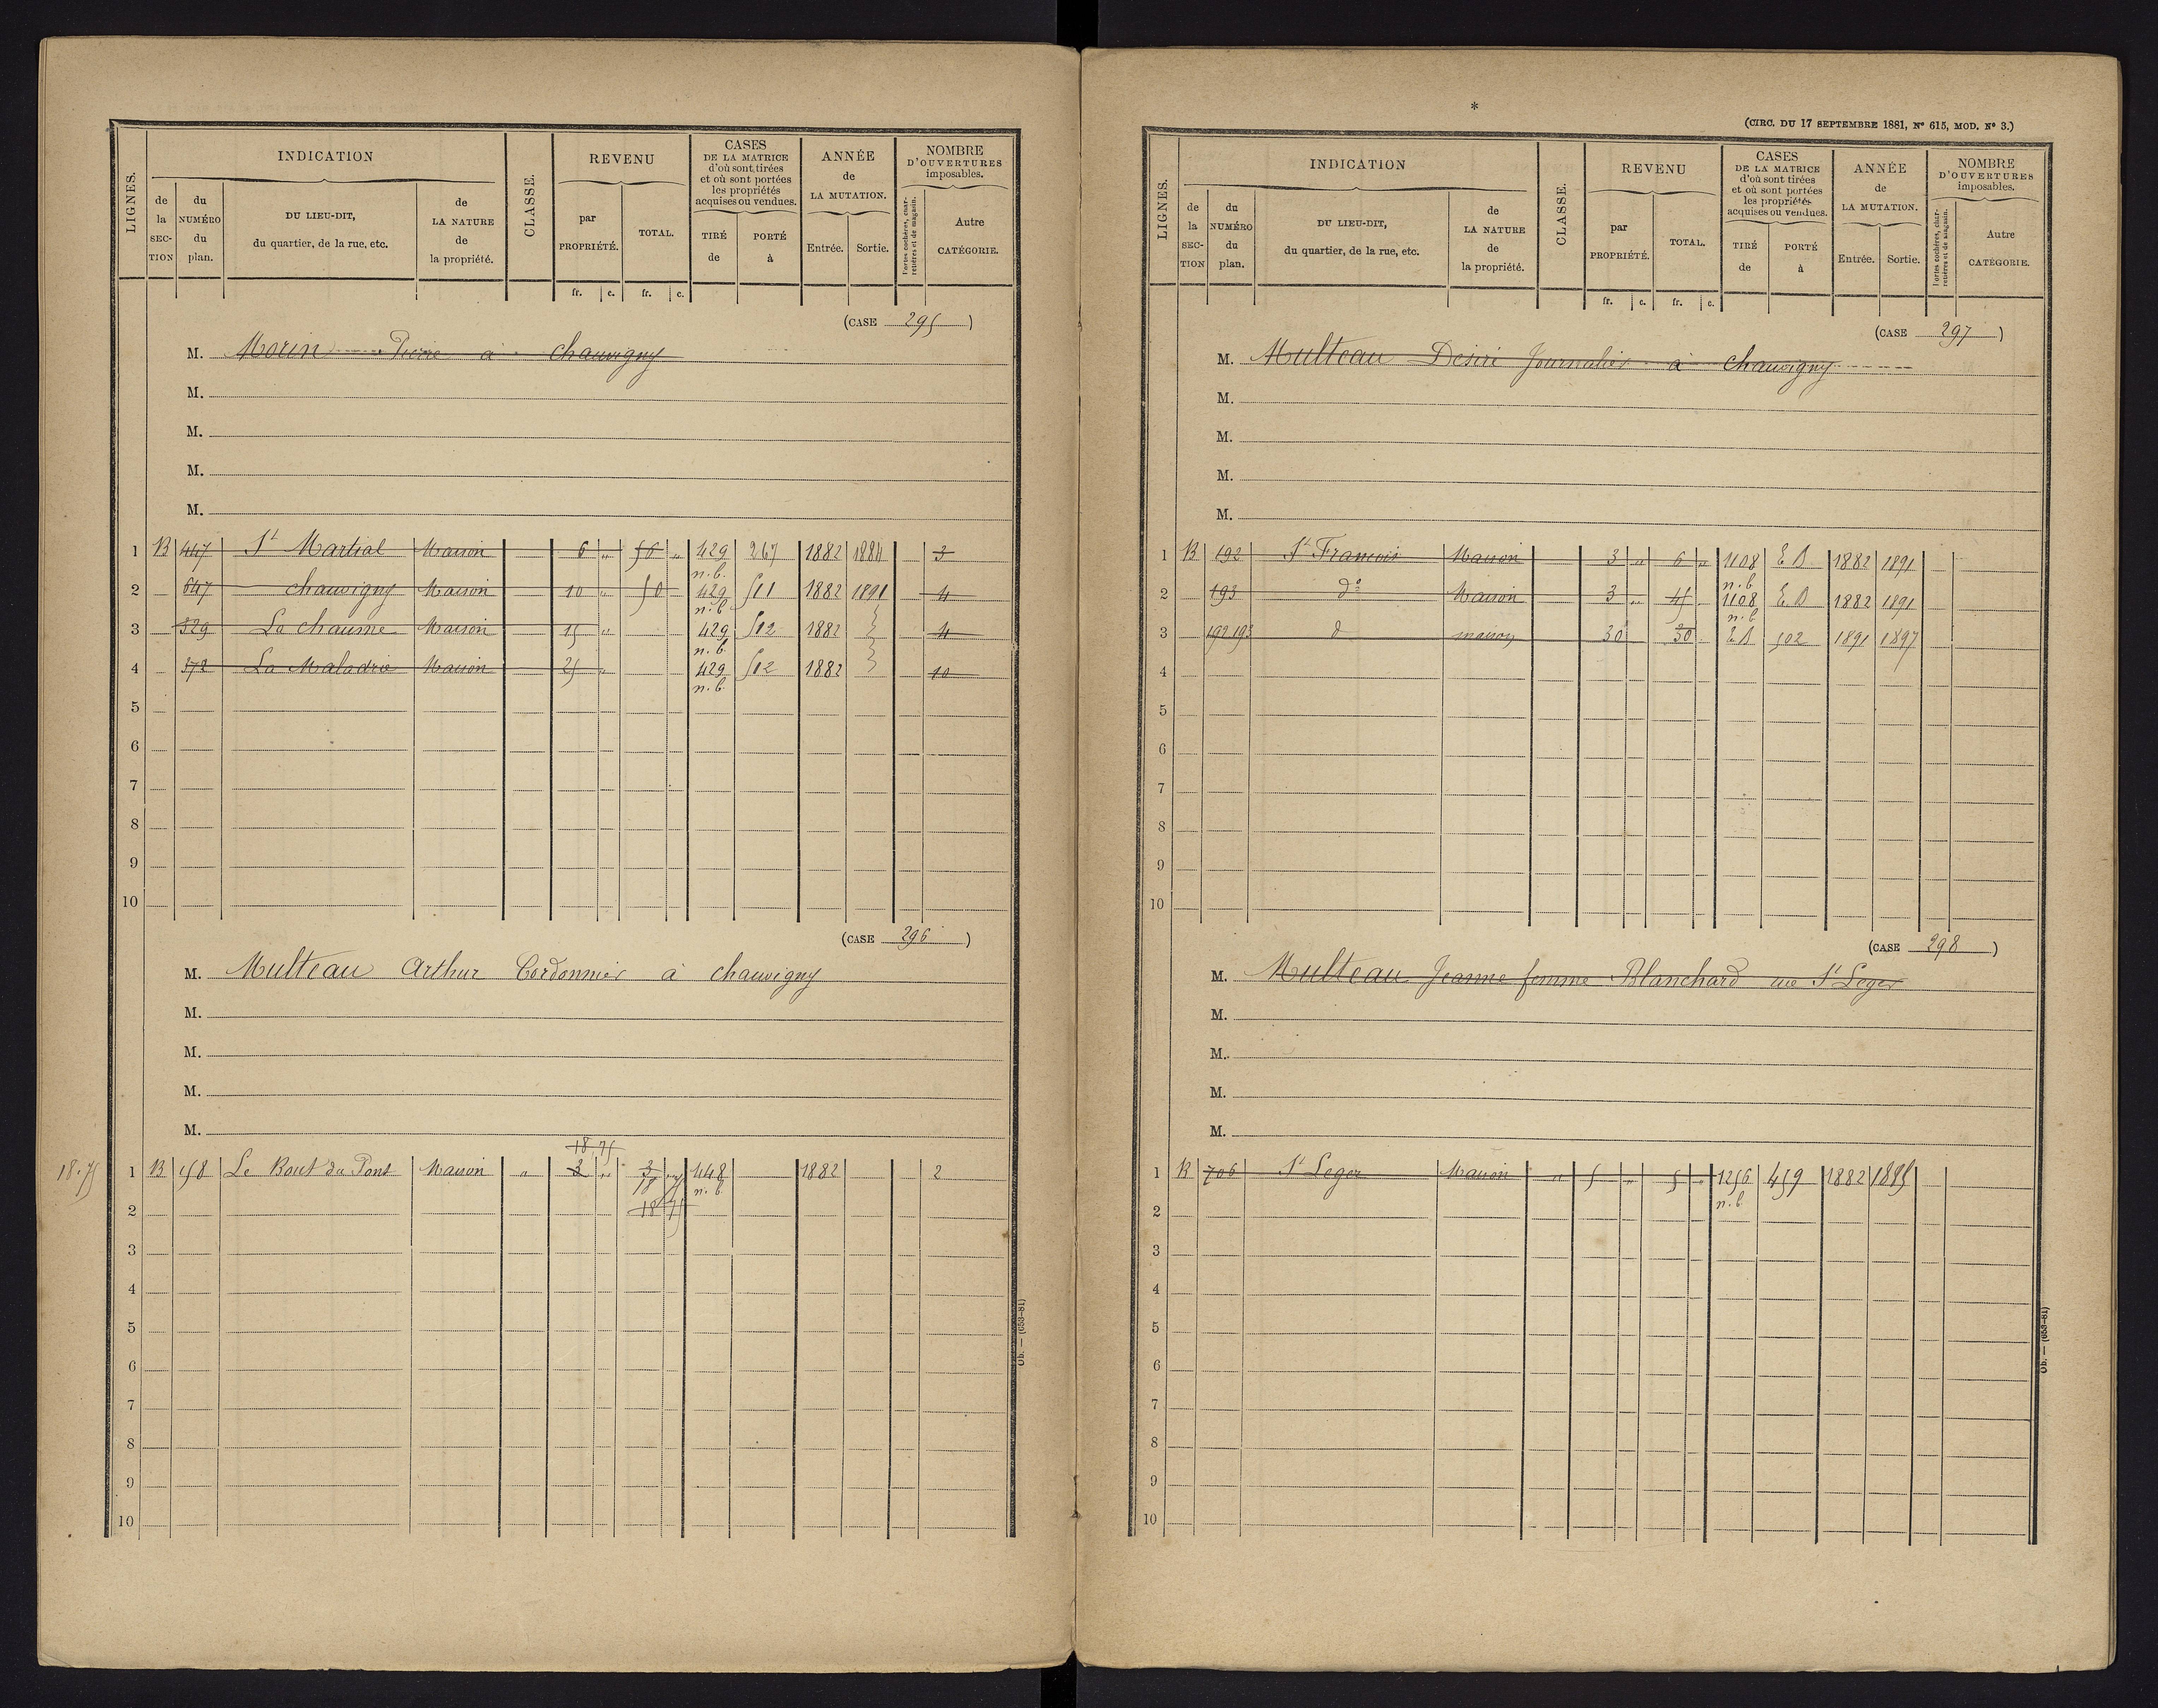 LIGNES.
INDICATION
de la SECTION
du NUMÉRO du plan.
DU LIEU-DIT, du quartier, de la rue, etc.
de LA NATURE de la propriété.
CLASSE.
REVENU
par PROPRIÉTÉ.
TOTAL.
fr. c. fr. c.
CASES DE LA MATRICE d'où sont tirées et où sont portées les propriétés acquises ou vendues.
TIRÉ de
PORTÉ à
ANNÉE de LA MUTATION.
Entrée. Sortie.
NOMBRE D'OUVERTURES imposables.
Portes cochères, charretières et de magasin.
Autre CATÉGORIE.
(CASE 295)
M. Morin Pierre à chauvigny
M.
M.
M.
M.
1 B 447 St Martial Maison 6 „ 56 „ 429 n.b. 267 1882 1884 3
2 647 chauvigny Maison 10 „ 50 429 n.b. 511 1882 1891 4
3 329 La chaume Maison 15 „ 429 n.b. 512 1882 4
4 372 La Maladrie Maison 25 „ 429 n.b. 512 1882 10
5
6
7
8
9
10
(CASE 296)
M. Multeau Arthur Cordonnier à chauvigny
M.
M.
M.
M.
18.75
18.75 1 B 158 Le Bout du Pont Maison „ 3 „ 3 448 n.b. 1882 2
18 75
2 18 75
3
4
5
6
7
8
9
10
Ob. — (653-81)
*
(CIRC. DU 17 SEPTEMBRE 1881, N° 615, MOD. N° 3.)
LIGNES.
INDICATION
de la SECTION
du NUMÉRO du plan.
DU LIEU-DIT, du quartier, de la rue, etc.
de LA NATURE de la propriété.
CLASSE.
REVENU
par PROPRIÉTÉ.
TOTAL.
fr. c. fr. c.
CASES DE LA MATRICE d'où sont tirées et où sont portées les propriétés acquises ou vendues.
TIRÉ de
PORTÉ à
ANNÉE de LA MUTATION.
Entrée. Sortie.
NOMBRE D'OUVERTURES imposables.
Portes cochères, charretières et de magasin.
Autre CATÉGORIE.
(CASE 297)
M. Multeau Desiré Journalier à chauvigny
M.
M.
M.
M.
1 B 192 St Francois Maison 3 „ 6 „ 1108 n.b. E B 1882 1891
2 193 d° Maison 3 „ 45 1108 n.b. E. B 1882 1891
3 192 193 d maison 30 30 E B 502 1891 1897
4
5
6
7
8
9
10
(CASE 298)
M. Multeau Jeanne femme Blanchard rue St Leger
M.
M.
M.
M.
1 B 706 St Leger Maison „ 5 „ 5 „ 1256 n.b. 459 1882 1885
2
3
4
5
6
7
8
9
10
Ob. — (653-81)